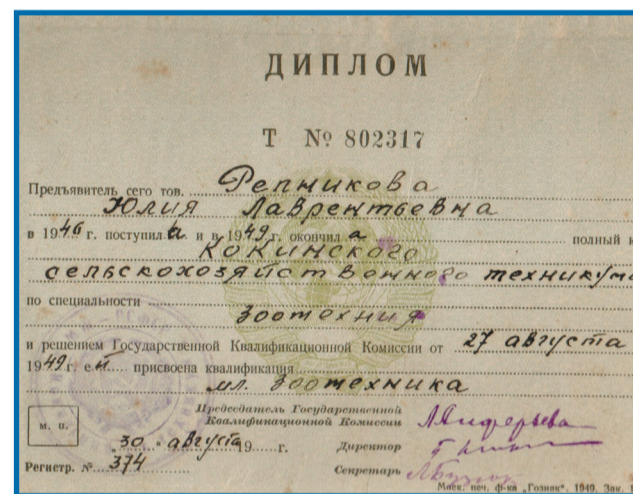 ДИПЛОМ
Т № 802317
Предъявитель сего тов. Репникова
Юлия Лаврентьевна
в 1946 г. поступила и в 1949 г. окончила полный к
Кокинского
сельскохозяйственного техникума
по специальности
Зоотехния
и решением Государственной Квалификационной Комиссии от 27 августа
1949 г. ей присвоена квалификация
мл. зоотехника
Председатель Государственной
Квалификационной Комиссии
М. П.
"30" августа 19 г. Директор
Регистр. № 374 Секретарь
Моск. печ. ф-ка „Гознак“. 1949. Зак.